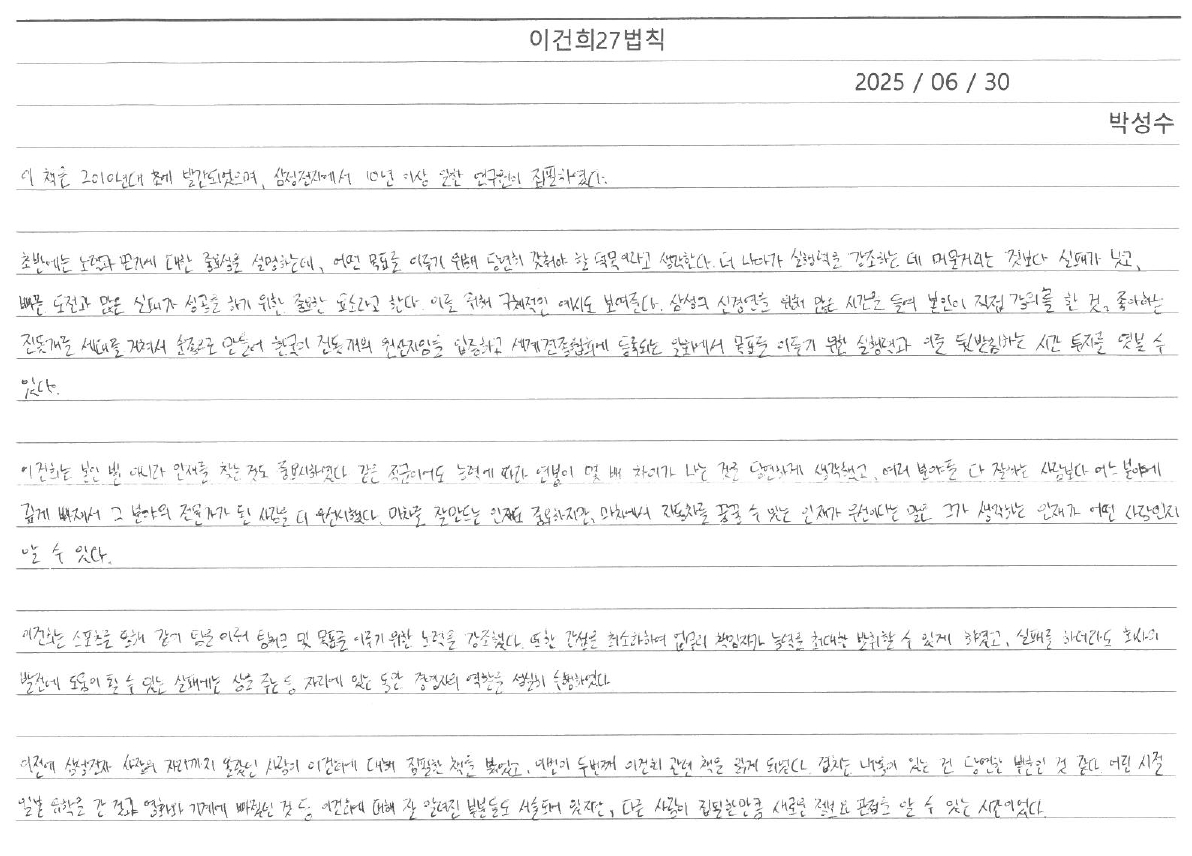 이건희27법칙
2025 / 06 / 30
박성수
이 책은 2010년대 초에 발간되었으며, 삼성전자에서 10년 이상 일한 연구원이 집필하였다.
초반에는 노력과 끈기에 대한 중요성을 설명하는데, 어떤 목표를 이루기 위해 당연히 갖춰야 할 덕목이라고 생각한다. 더 나아가 실행력을 강조하는 데 머뭇거리는 것보다 실패가 낫고,
빠른 도전과 많은 실패가 성공을 하기 위한 중요한 요소라고 한다. 이를 위해 구체적인 예시도 보여준다. 삼성의 신경영을 위해 많은 시간을 들여 본인이 직접 강의를 한 것, 좋아하는
진돗개를 세대를 거쳐서 순종으로 만들어 한국이 진돗개의 원산지임을 입증하고 세계견종협회에 등록되는 일화에서 목표를 이루기 위한 실행력과 이를 뒷받침하는 시간 투자를 엿볼 수
있다.
이건희는 본인 뿐 아니라 인재를 찾는 것도 중요시하였다. 같은 직급이어도 능력에 따라 연봉이 몇 배 차이가 나는 것을 당연하게 생각했고, 여러 분야를 다 잘하는 사람보다 어느 분야에
깊게 빠져서 그 분야의 전문가가 된 사람을 더 우선시했다. 마차를 잘 만드는 인재도 중요하지만, 마차에서 자동차를 꿈꿀 수 있는 인재가 우선이라는 말은 그가 생각하는 인재가 어떤 사람인지
알 수 있다.
이건희는 스포츠를 통해 같이 팀을 이뤄 팀워크 및 목표를 이루기 위한 노력을 강조했다. 또한 간섭을 최소화하여 업무의 책임자가 능력을 최대한 발휘할 수 있게 하였고, 실패를 하더라도 회사의
발전에 도움이 될 수 있는 실패에는 상을 주는 등 자리에 있는 동안 경영자의 역할을 성실히 수행하였다.
이전에 삼성전자 사장의 자리까지 올랐던 사람이 이건희에 대해 집필한 책을 봤었고, 이번이 두번째 이건희 관련 책을 읽게 되었다. 겹치는 내용이 있는 건 당연한 부분인 것 같다. 어린 시절
일본 유학을 간 것과 영화와 기계에 빠졌던 것 등 이건희에 대해 잘 알려진 부분들도 서술되어 있지만, 다른 사람이 집필한만큼 새로운 관점을 알 수 있는 시간이었다.